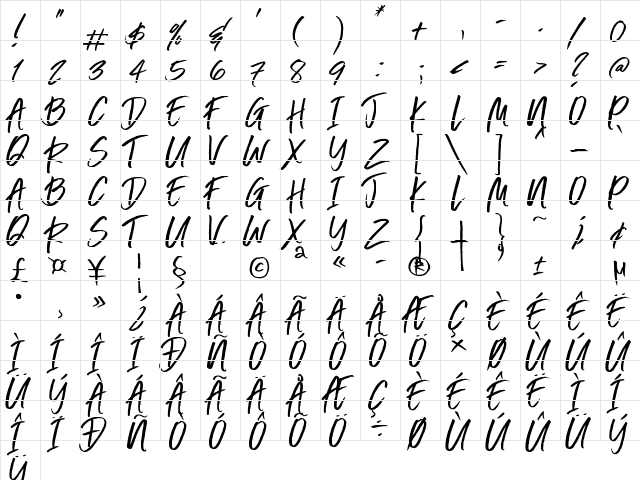 ! " # $ % & ' ( ) * + , - . / 0
1 2 3 4 5 6 7 8 9 : ; < = > ? @
A B C D E F G H I J K L M N O P
Q R S T U V W X Y Z [ \ ] ^ _ `
A B C D E F G H I J K L M N O P
Q R S T U V W X Y Z { | } ~ ¡ ¢
£ ¤ ¥ ¦ § ¨ © ª « ¬ ® ¯ ° ± ´ µ
· ¸ » ¿ À Á Â Ã Ä Å Æ Ç È É Ê Ë
Ì Í Î Ï Ð Ñ Ò Ó Ô Õ Ö × Ø Ù Ú Û
Ü Ý À Á Â Ã Ä Å Æ Ç È É Ê Ë Ì Í
Î Ï Ð Ñ Ò Ó Ô Õ Ö ÷ Ø Ù Ú Û Ü Ý
Ÿ